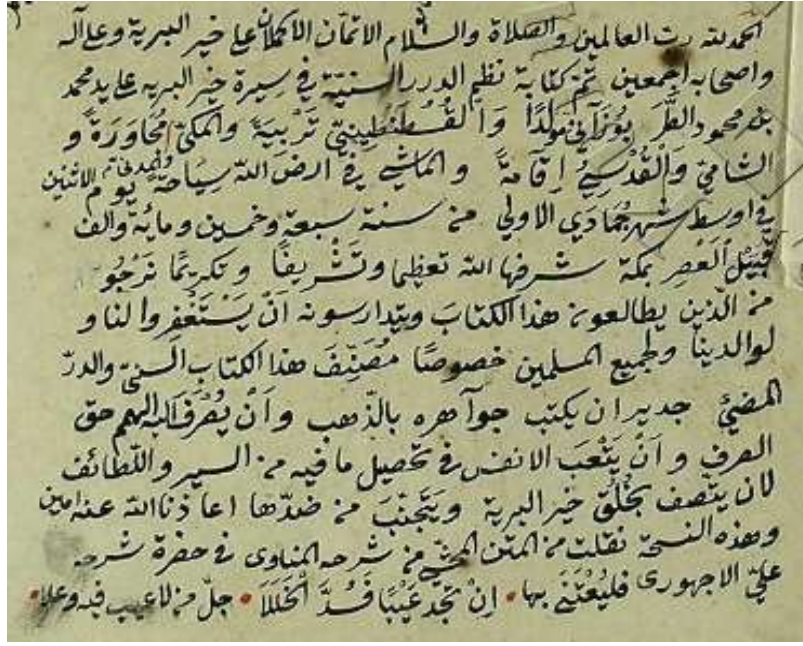 الحمد لله رب العالمين والصلاة والسلام الاتمان الاكملان على خير البرية وعلى آله
واصحابه اجمعين تم كتابة نظم الدرر السنية في سيرة خير البريه على يد محمد
بن محمود الطَّرَ بوُزَانيّ مولدًا وَالقُسْطَنْطِينِيّ تَرْبِيَةً والمكيّ مُجَاوَرَةً و
الشاميّ وَالْقُدْسِيّ اِقَامَةً والماشي في ارض الله سِيَاحَةً يوم الاثنين
في اوسط شهر جُمَادَي الاولي من سنة سبعة وخمسين ومائة والف
قُبَيْلَ العَصرِ بمكة شرفها الله تعظيما وتَشْريفًا وتكريمًا نَرْجُو
من الّذين يطالعون هذا الكتابَ ويتدارسونه اَنْ يَسْتَغْفِروا لنا و
لوالدينا ولجميع المسلمين خصوصًا مُصَنِّفَ هذا الكتاب السنيّ والدرّ
المضيئِ جدير ان يكتب جواهره بالذّهب واَنْ يُصْرَفَ اليه الهمم حق
الصرف واَنْ يَتْعَبَ الانفس في تحصيل ما فيه من السير واللّطائف
لان يتصف بخُلُق خير البرية ويَتَجنّبَ من ضدّها اعاذنا الله عنه امين
وهذه النسخة نقلت من المتن المحشّي من شرحه المناوى في حضرة شرحه
عليّ الاجهورى فليُعْتَنَي بها • اِنْ تجد عَيْبًا فَسُدَّ الْخَلَلَا • جلّ من لا عيب فيه وعلا •